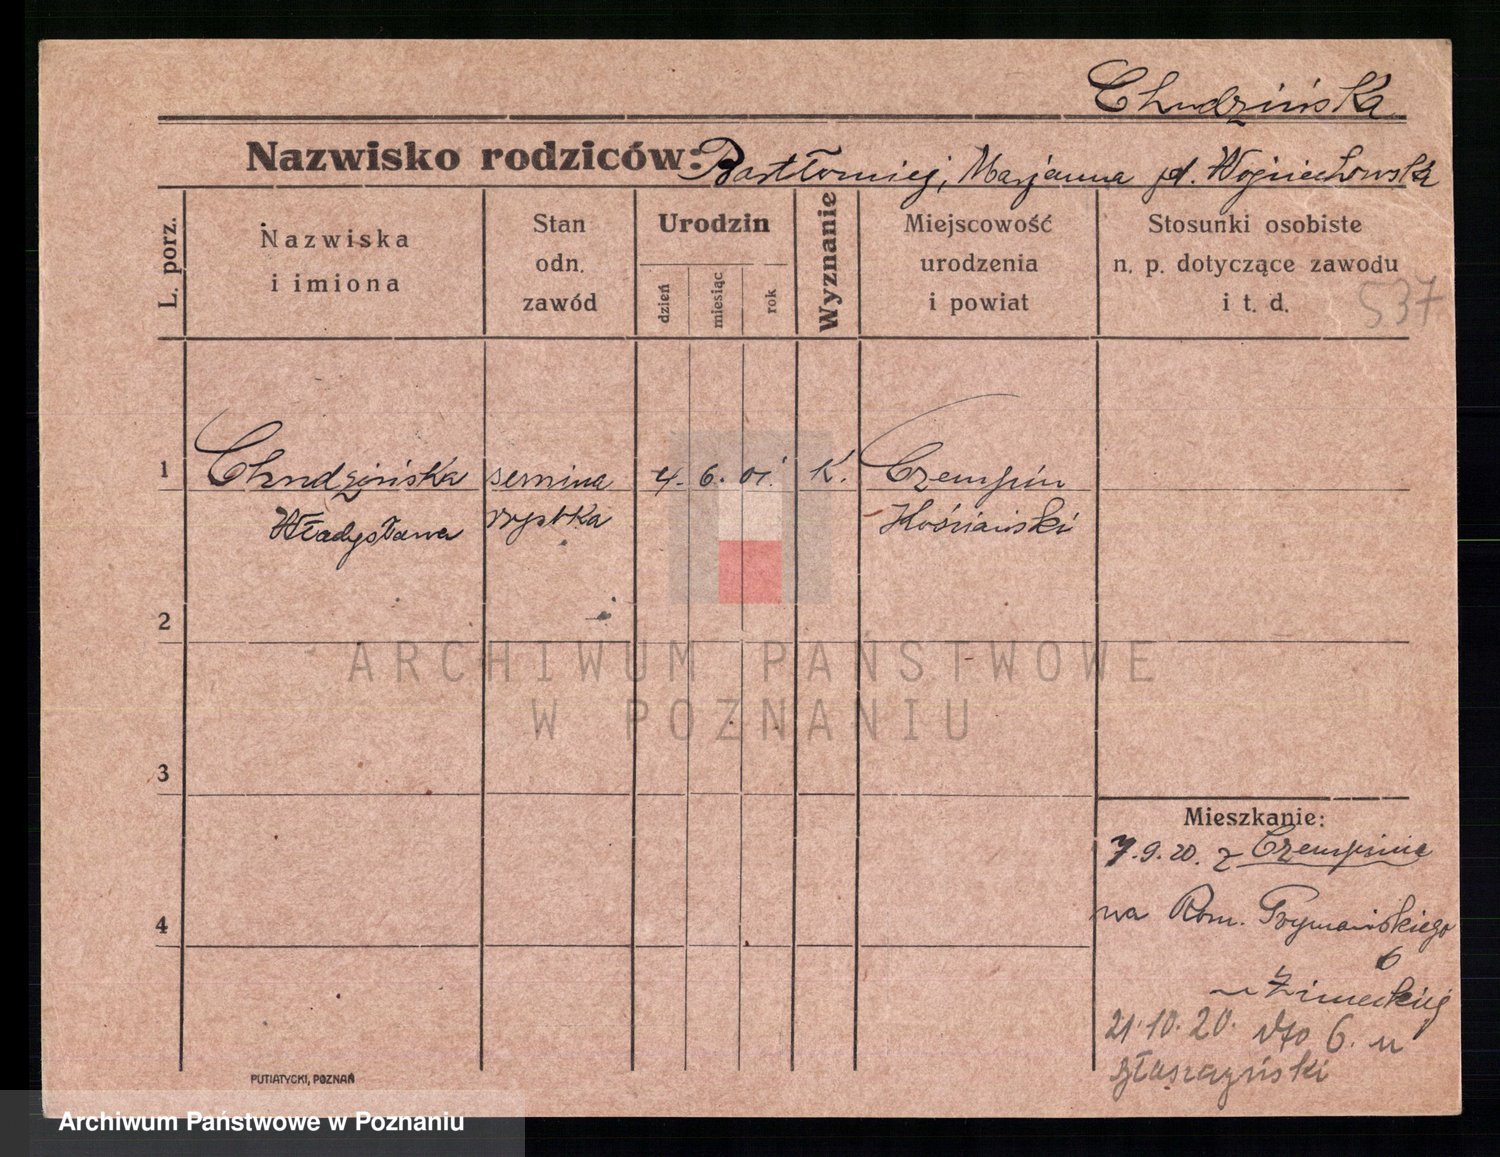 Chudzińska
Nazwisko rodziców: Bartłomiej, Marjanna
L. porz.
Nazwiska
i imiona
Stan
odn.
zawód
Urodzin
dzień
miesiąc
rok
Wyznanie
Miejscowość
urodzenia
i powiat
Stosunki osobiste
n. p. dotyczące zawodu
i t. d.
537
1 Chudzińska semina 4. 6. 01. K. Czempiń
Władysława rystka Kościański
2
ARCHIWUM PAŃSTWOWE
W POZNANIU
3
Mieszkanie:
7.9.20. z Czempinia
4
na Rom. Szymańskiego
6
u
21.10.20. dto 6. u
PUTIATYCKI, POZNAŃ
Archiwum Państwowe w Poznaniu